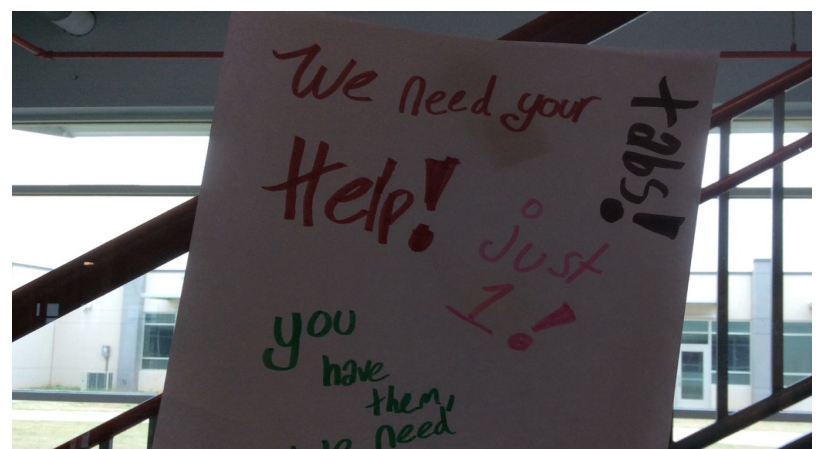 We need your
Help!
tabs!
just
1!
you
have
them,
we need